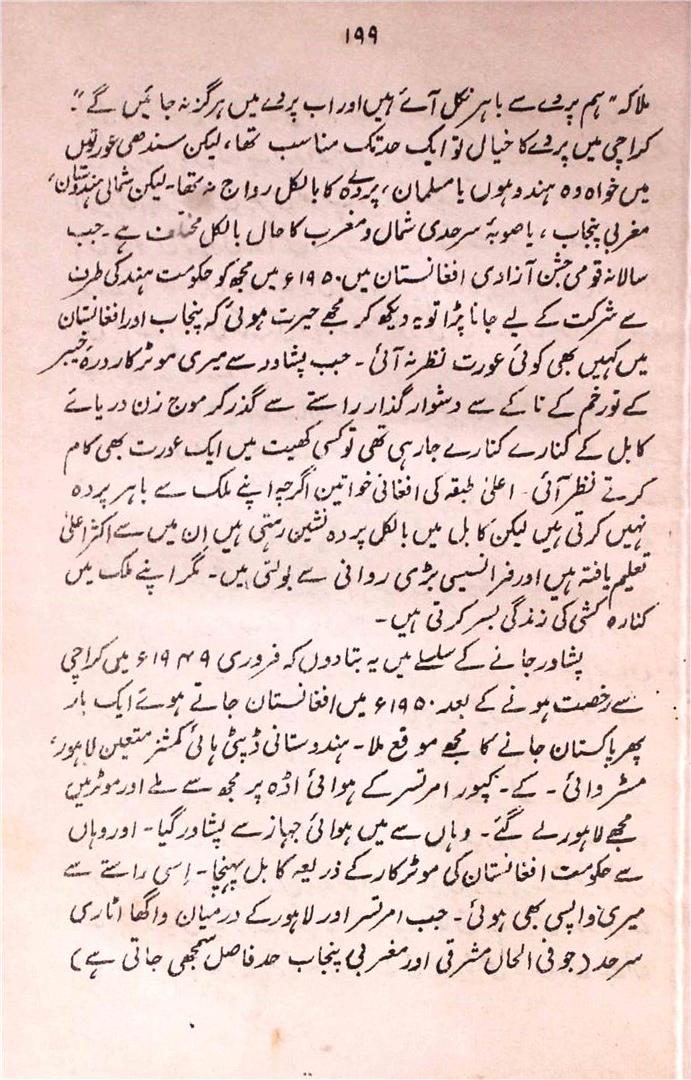 ۱۹۹
ملا کہ "ہم پردے سے باہر نکل آئے ہیں اور اب پردے میں ہرگز نہ جائیں گے"۔
کراچی میں پردے کا خیال تو ایک حد تک مناسب تھا، لیکن سندھی عورتوں
میں خواہ وہ ہندو ہوں یا مسلمان، پردے کا بالکل رواج نہ تھا۔ لیکن شمالی ہندوستان،
مغربی پنجاب، یا صوبۂ سرحدی شمال و مغرب کا حال بالکل مختلف ہے۔ جب
سالانہ قومی جشن آزادی افغانستان میں ۱۹۵۰ء میں مجھ کو حکومت ہند کی طرف
سے شرکت کے لیے جانا پڑا تو یہ دیکھ کر مجھے حیرت ہوئی کہ پنجاب اور افغانستان
میں کہیں بھی کوئی عورت نظر نہ آئی۔ جب پشاور سے میری موٹر کار درۂ خیبر
کے تورخم کے ناکے سے دشوار گذار راستے سے گذر کر موج زن دریائے
کابل کے کنارے کنارے جا رہی تھی تو کسی کھیت میں ایک عورت بھی کام
کرتے نظر آئی۔ اعلیٰ طبقہ کی افغانی خواتین اگرچہ اپنے ملک سے باہر پردہ
نہیں کرتی ہیں لیکن کابل میں بالکل پردہ نشین رہتی ہیں ان میں سے اکثر اعلیٰ
تعلیم یافتہ ہیں اور فرانسیسی بڑی روانی سے بولتی ہیں۔ مگر اپنے ملک میں
کنارہ کشی کی زندگی بسر کرتی ہیں۔
پشاور جانے کے سلسلے میں یہ بتا دوں کہ فروری ۱۹۴۹ء میں کراچی
سے رخصت ہونے کے بعد ۱۹۵۰ء میں افغانستان جاتے ہوئے ایک بار
پھر پاکستان جانے کا مجھے موقع ملا۔ ہندوستانی ڈپٹی ہائی کمشنر متعین لاہور،
مسٹر وائی۔ کے۔ کپور امرتسر کے ہوائی اڈہ پر مجھ سے ملے اور موٹر میں
مجھے لاہور لے گئے۔ وہاں سے میں ہوائی جہاز سے پشاور گیا۔ اور وہاں
سے حکومت افغانستان کی موٹر کار کے ذریعہ کابل پہنچا۔ اِسی راستے سے
میری واپسی بھی ہوئی۔ جب امرتسر اور لاہور کے درمیان واگھا اٹاری
سرحد (جو فی الحال مشرقی اور مغربی پنجاب حد فاصل سمجھی جاتی ہے)